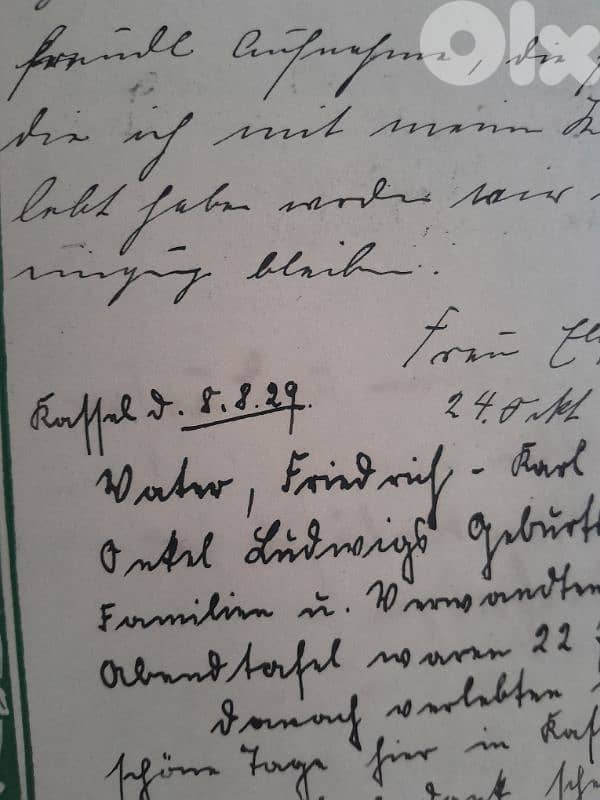 freudl Aufnahme, die
die ich mit meinem
lebt haben werden wir
bleiben.
Frau
24. Okt
Kassel d. 8.8.29.
Vater, Friedrich-Karl
Onkel Ludwigs Geburts
Familien u. Verwandten
Abendtafel waren 22
danach verlebten
schöne Tage hier in Kass
dank
olx